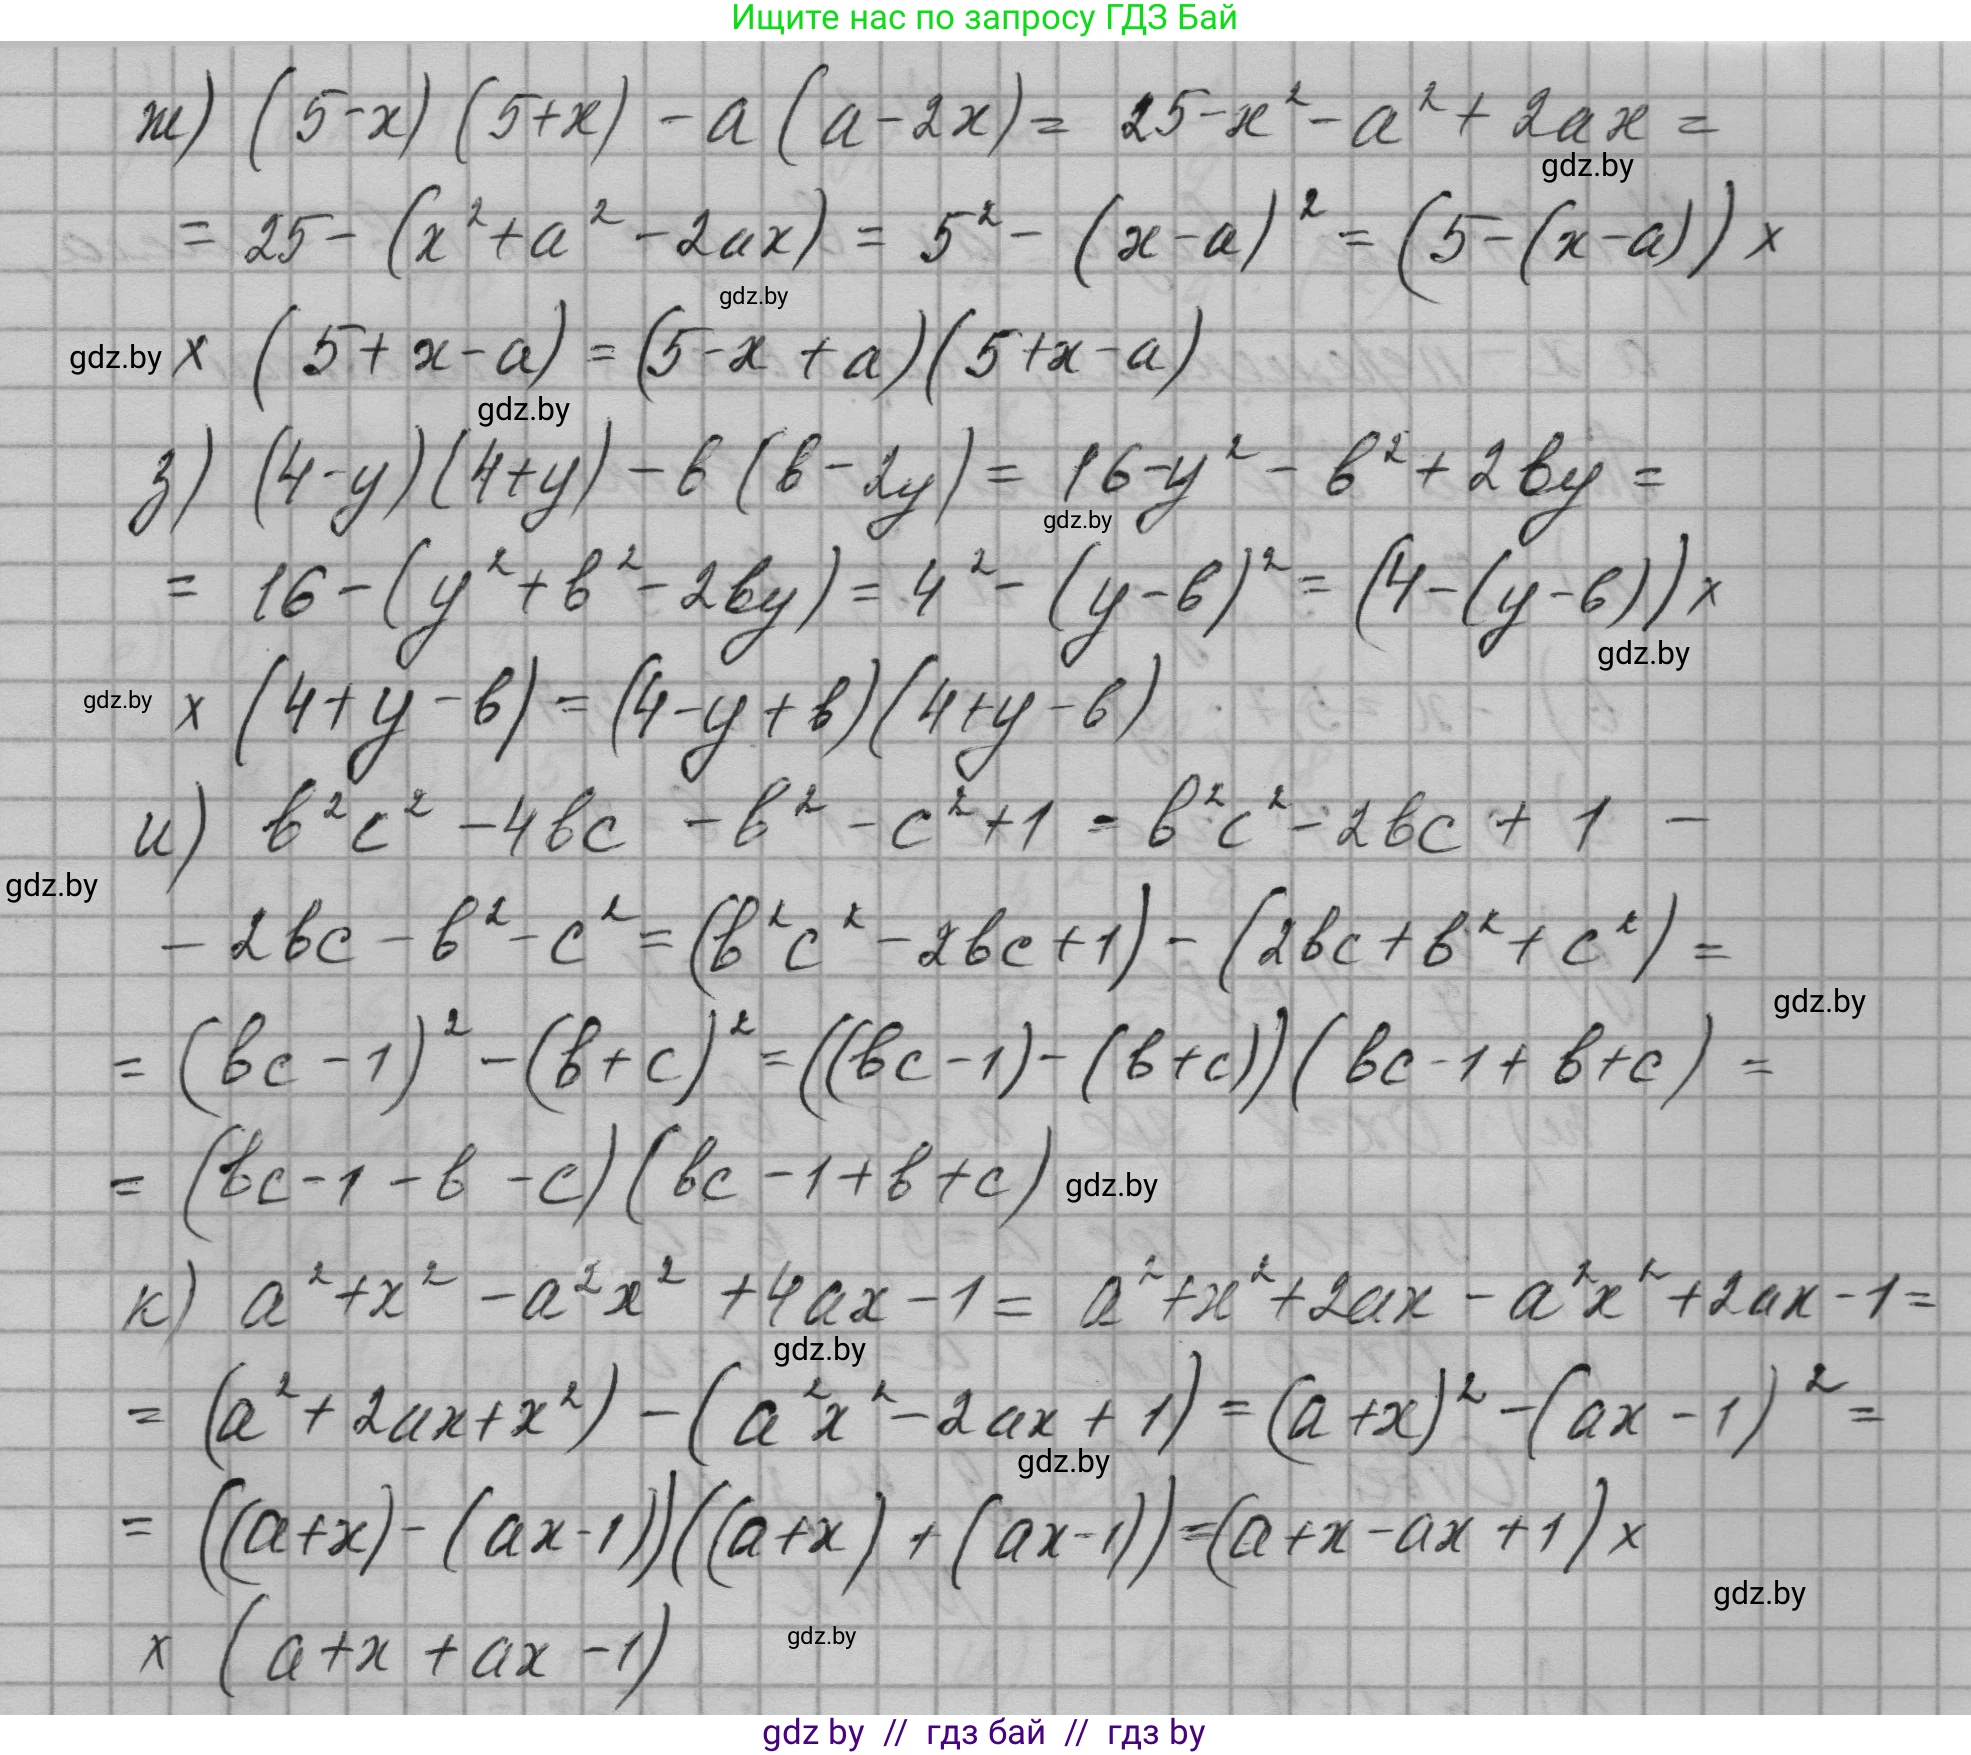 Ищите нас по запросу ГДЗ Бай
ж) (5-x)(5+x) - a(a-2x) = 25-x² - a² + 2ax =
gdz.by
= 25 - (x² + a² - 2ax) = 5² - (x-a)² = (5-(x-a)) ×
gdz.by
gdz.by × (5+x-a) = (5-x+a)(5+x-a)
gdz.by
з) (4-y)(4+y) - в(в-2y) = 16-y² - в² + 2вy =
gdz.by
= 16 - (y² + в² - 2вy) = 4² - (y-в)² = (4-(y-в)) ×
gdz.by
gdz.by × (4+y-в) = (4-y+в)(4+y-в)
и) в²c² - 4вc - в² - c² + 1 = в²c² - 2вc + 1 -
gdz.by
- 2вc - в² - c² = (в²c² - 2вc + 1) - (2вc + в² + c²) =
gdz.by
= (вc-1)² - (в+c)² = ((вc-1) - (в+c))(вc-1+в+c) =
= (вc-1-в-c)(вc-1+в+c) gdz.by
к) a² + x² - a²x² + 4ax - 1 = a² + x² + 2ax - a²x² + 2ax - 1 =
gdz.by
= (a² + 2ax + x²) - (a²x² - 2ax + 1) = (a+x)² - (ax-1)² =
gdz.by
= ((a+x) - (ax-1))((a+x) + (ax-1)) = (a+x-ax+1) ×
gdz.by
× (a+x+ax-1)
gdz.by
gdz by // гдз бай // гдз by